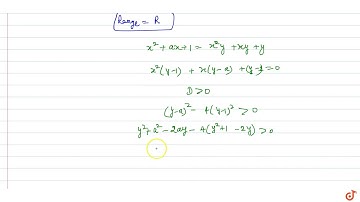 Range = R
x² + ax + 1 = x²y + xy + y
x²(y-1) + x(y-a) + (y-1) = 0
D > 0
(y-a)² - 4(y-1)² > 0
y² + a² - 2ay - 4(y² + 1 - 2y) > 0